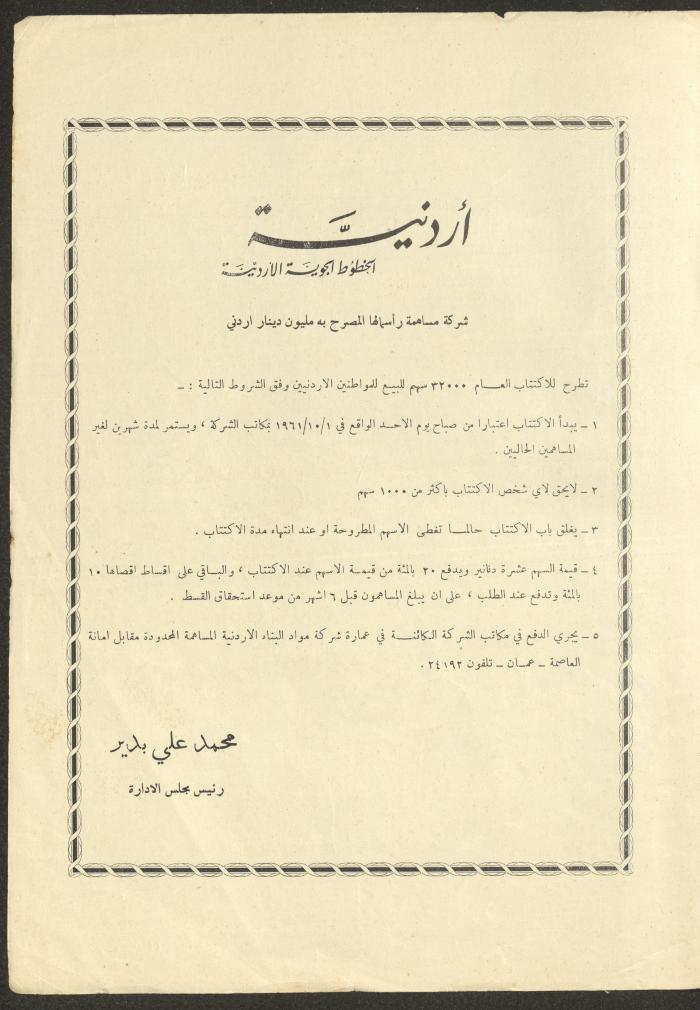 أردنيَّة
الخطوط الجوية الأردنيّة
شركة مساهمة رأسمالها المصرح به مليون دينار اردني
تطرح للاكتتاب العـــام ٣٢٠٠٠ سهم للبيع للمواطنين الاردنيين وفق الشروط التالية : ــ
١ ــ يبدأ الاكتتاب اعتبارا من صباح يوم الاحد الواقع في ١٩٦١/١٠/١ بمكاتب الشركة ، ويستمر لمدة شهرين لغير
المساهمين الحاليين .
٢ ــ لايحق لاي شخص الاكتتاب باكثر من ١٠٠٠ سهم
٣ ــ يغلق باب الاكتتاب حالمـا تغطى الاسهم المطروحة او عند انتهاء مدة الاكتتاب .
٤ ــ قيمة السهم عشرة دنانير ويدفع ٢٠ بالمئة من قيمة الاسهم عند الاكتتاب ، والباقي على اقساط اقصاها ١٠
بالمئة وتدفع عند الطلب ، على ان يبلغ المساهمون قبل ٦ اشهر من موعد استحقاق القسط .
٥ ــ يجري الدفع في مكاتب الشركة الكائنــة في عمارة شركة مواد البناء الاردنية المساهمة المحدودة مقابل امانة
العاصمة ــ عمـان ــ تلفون ٢٤١٩٢ .
محمد علي بدير
رئيس مجلس الادارة